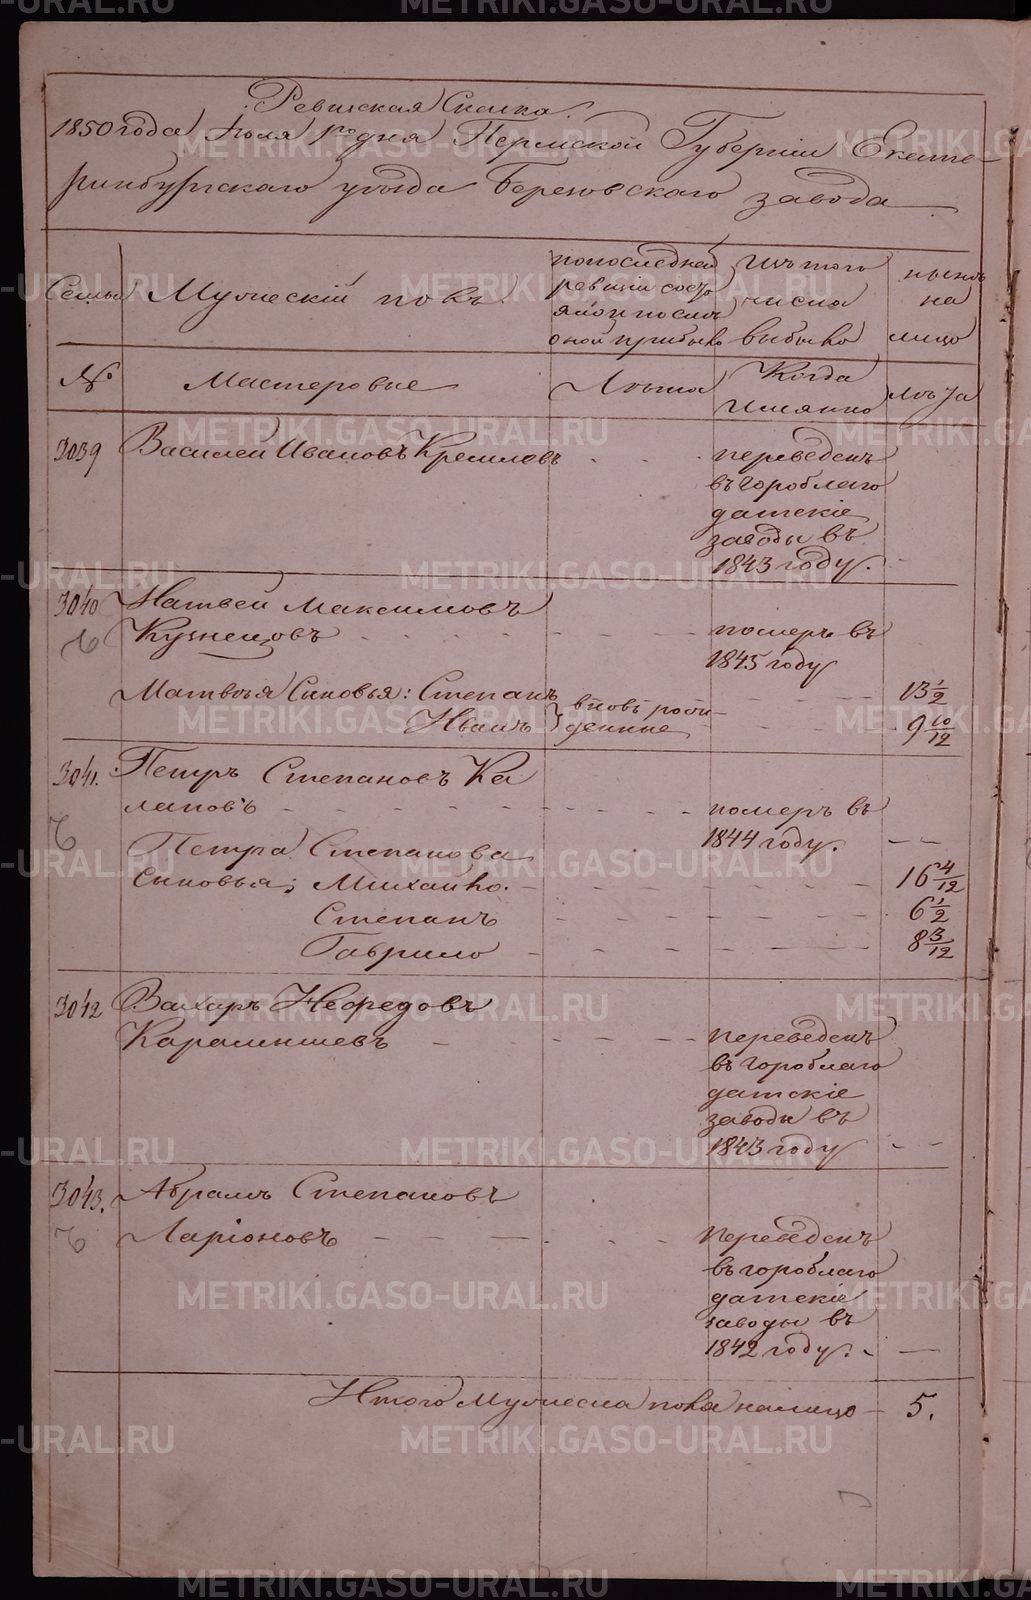 Ревизская Сказка.
1850 года Июля 1го дня Пермской Губернии Екате-
ринбургского уезда Березовского завода
Семьи
Мужеский полъ
по последней
ревизіи состо
яло и после
оной прибыло
Изъ того
числа
выбыло
ныне
на
лицо
№
Мастеровые
Лѣта
Когда
Имянно
Лѣта
3039
Василей Ивановъ Кремлевъ
переведенъ
въ Гороблаго
датскіе
заводы въ
1843 году.
3040
Матвей Максимовъ
Кузнецовъ
померъ въ
1845 году
Матвѣя Сыновья: Степанъ
Иванъ
вновь рож
денные
13 1/2
9 10/12
3041.
Петръ Степановъ Ка
лаповъ
померъ въ
1844 году.
Петра Степанова
Сыновья; Михайло.
16 4/12
Степанъ
6 1/2
Гаврило
8 3/12
3042
Захаръ Нефедовъ
переведенъ
въ Гороблаго
датскіе
заводы въ
1843 году
3043.
Абрамъ Степановъ
Ларіоновъ
переведенъ
въ гороблаго
датскіе
заводы въ
1842 году.
Итого Мужеска пола на лицо
5.
METRIKI.GASO-URAL.RU